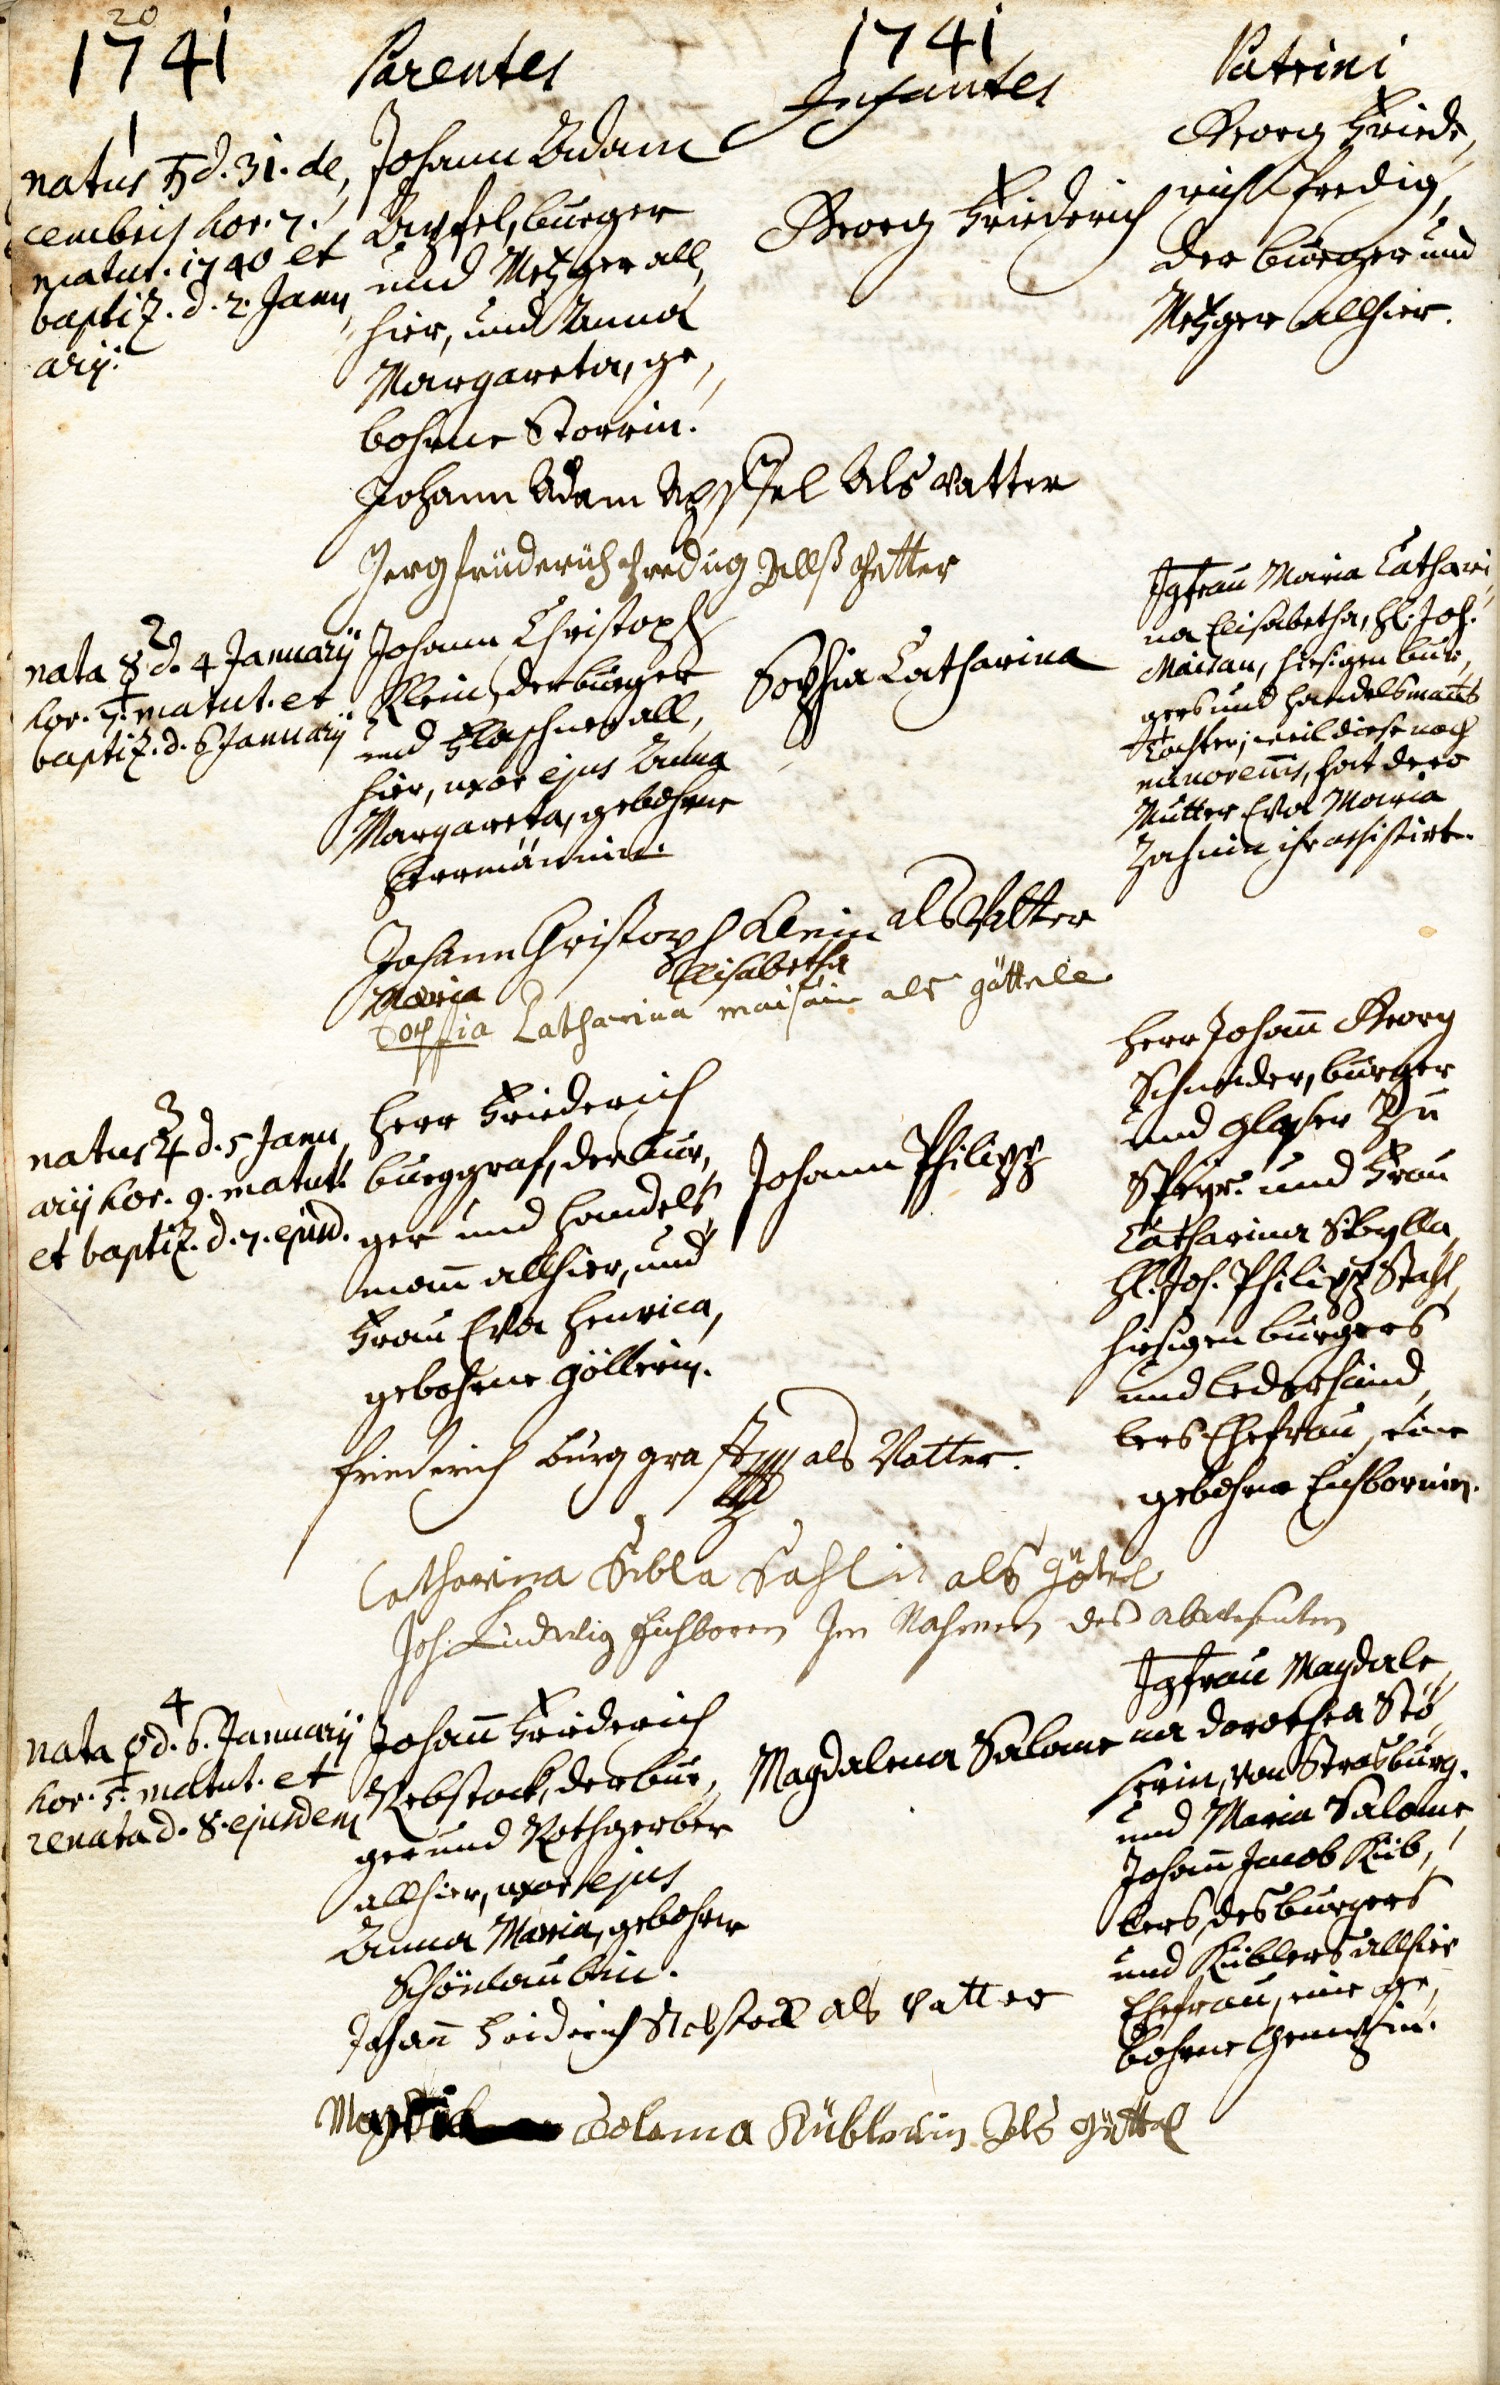 20
1741 Parentes 1741 Infantes Patrini
1
natus ♄ d. 31. de,
cembris hor. 7.
matut. 1740 et
baptiz. d. 2. Janu,
arij.
Johann Adam
Apffel, burger
und Metzger all,
hier, und Anna
Margareta, ge,
bohrne Storrin.
Georg Friederich
Georg Friede,
rich Fredig,
der burger und
Metzger allhier.
Johann Adam Apffel Als vatter
Jerg friderich fredig Allß Petter
2
nata ☿ d. 4 Januarij
hor. 5. matut. et
baptiz. d. 6 Januarij
Johann Christoph
Klein, der burger
und Flaschner all,
hier, uxor ejus Anna
Margareta, gebohrne
Herrmännin.
Sophia Catharina
Jgfrau Maria Cathari,
na Elisabetha, H. Joh.
Maisan, hiesigen bur,
gers und handelsmanns
Tochter; weil diese noch
minorennis, hat dero
Mutter Eva Maria
Zahnin ihr assistirt.
Johann Christoph Klein als Vatter
Maria Elisabetha
Sophia Catharina maisain als göttele
3
natus ♃ d. 5 Janu,
arij hor. 9. matut.
et baptiz. d. 7. ejusd.
Herr Friederich
burggraf, der bur,
ger und handels,
mann allhier, und
Frau Eva Henrica,
gebohrne Göllerin.
Johann Philipp
Herr Johann Georg
Schneider, burger
und Glaser zu
Speyr. und Frau
Catharina Sibylla,
H. Joh. Philipp Stahl,
hiesigen burgers
und lederhänd,
lers Ehefrau, eine
gebohrne Eichbornin.
friederich burggraff als Vatter.
Catharina Sibla Sahlin als Götel
Joh. Ludwig Eichborn Im Nahmen des abwesenten
4
nata ♀ d. 6. Januarij
hor. 5. matut. et
renata d. 8. ejusdem
Johann Friederich
Rebstock, der bur,
ger und Rothgerber
allhier, uxor ejus
Anna Maria, gebohrne
Schönlaubin.
Magdalena Salome
Jgfrau Magdale,
na Dorothea Stö,
rin, von Strasburg.
und Maria Salome,
Johann Jacob Küb,
lers, des burgers
und Küblers allhier
Ehefrau, eine ge,
bohrne
Johann Fridrich Rebstock als vatter
Saloma Küblerin Als Göttel